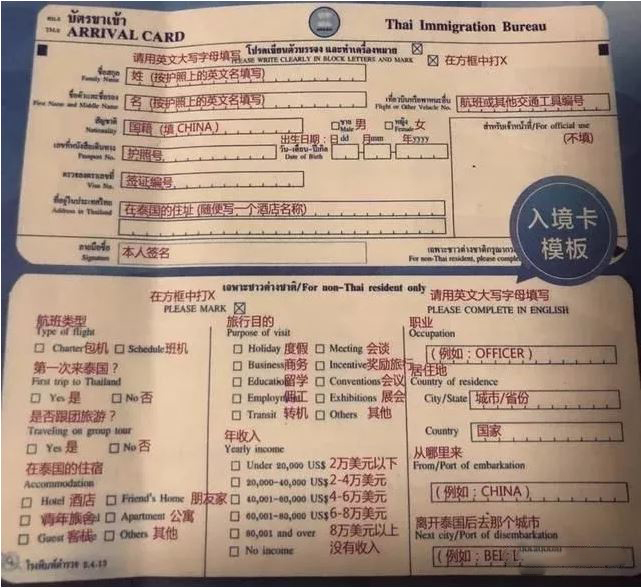 ตม.6 บัตรขาเข้า
TM.6 ARRIVAL CARD
Thai Immigration Bureau
โปรดเขียนตัวบรรจง และทำเครื่องหมาย
请用英文大写字母填写
PLEASE WRITE CLEARLY IN BLOCK LETTERS AND MARK
在方框中打X
ชื่อสกุล
Family Name
姓 (按护照上的英文名填写)
ชื่อตัวและชื่อรอง
First Name and Middle Name
名 (按护照上的英文名填写)
เที่ยวบินหรือพาหนะอื่น
Flight or Other Vehicle No.
航班或其他交通工具编号
สัญชาติ
Nationality
国籍 (填 CHINA)
ชาย
Male 男
หญิง
Female 女
สำหรับเจ้าหน้าที่/For official use
(不填)
เลขที่หนังสือเดินทาง
Passport No.
护照号
出生日期: 日 dd 月 mm 年 yyyy
วัน-เดือน-ปีเกิด
Date of Birth
ตรวจลงตราเลขที่
Visa No.
签证编号
ที่อยู่ในประเทศไทย
Address in Thailand
在泰国的住址 (随便写一个酒店名称)
ลายมือชื่อ
Signature
本人签名
เฉพาะชาวต่างชาติกรุณากรอก
For non-Thai resident, please
入境卡
模板
เฉพาะชาวต่างชาติ/For non-Thai resident only
在方框中打X
PLEASE MARK
请用英文大写字母填写
PLEASE COMPLETE IN ENGLISH
航班类型
Type of flight
Charter 包机 Schedule 班机
第一次来泰国?
First trip to Thailand
Yes 是 No 否
是否跟团旅游?
Traveling on group tour
Yes 是 No 否
在泰国的住宿
Accommodation
Hotel 酒店 Friend's Home 朋友家
青年旅舍 Apartment 公寓
Guest 客栈 Others 其他
旅行目的
Purpose of visit
Holiday 度假 Meeting 会谈
Business 商务 Incentive 奖励旅行
Education 留学 Conventions 会议
Employment 佣工 Exhibitions 展会
Transit 转机 Others 其他
年收入
Yearly income
Under 20,000 US$ 2万美元以下
20,000-40,000 US$ 2-4万美元
40,001-60,000 US$ 4-6万美元
60,001-80,000 US$ 6-8万美元
80,001 and over 8万美元以上
No income 没有收入
职业
Occupation
(例如: OFFICER)
居住地
Country of residence
City/State 城市/省份
Country 国家
从哪里来
From/Port of embarkation
(例如: CHINA)
离开泰国后去那个城市
Next city/Port of disembarkation
(例如:
โรงพิมพ์ตำรวจ